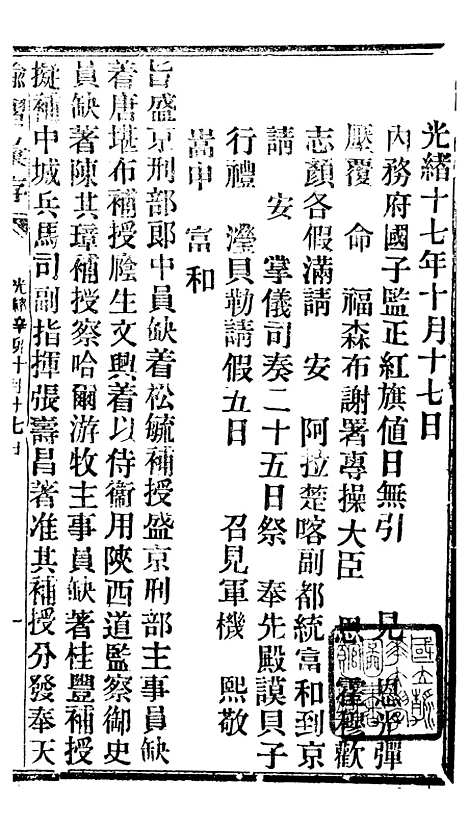 光緒十七年十月十七日
內務府國子監正紅旗值日無引　見　恩光彈
壓覆　命　福森布謝署專操大臣　恩　霍穆歡
志顏各假滿請　安　阿拉楚喀副都統富和到京
請　安　掌儀司奏二十五日祭　奉先殿謨貝子
行禮　瀅貝勒請假五日　召見軍機　熙敬
嵩申　富和
旨盛京刑部郎中員缺着松毓補授盛京刑部主事員缺
着唐堪布補授廕生文興着以侍衞用陝西道監察御史
員缺著陳其璋補授察哈爾游牧主事員缺著桂豐補授
擬補中城兵馬司副指揮張壽昌著准其補授分發奉天
諭摺彙存
光緒辛卯十月十七日
一